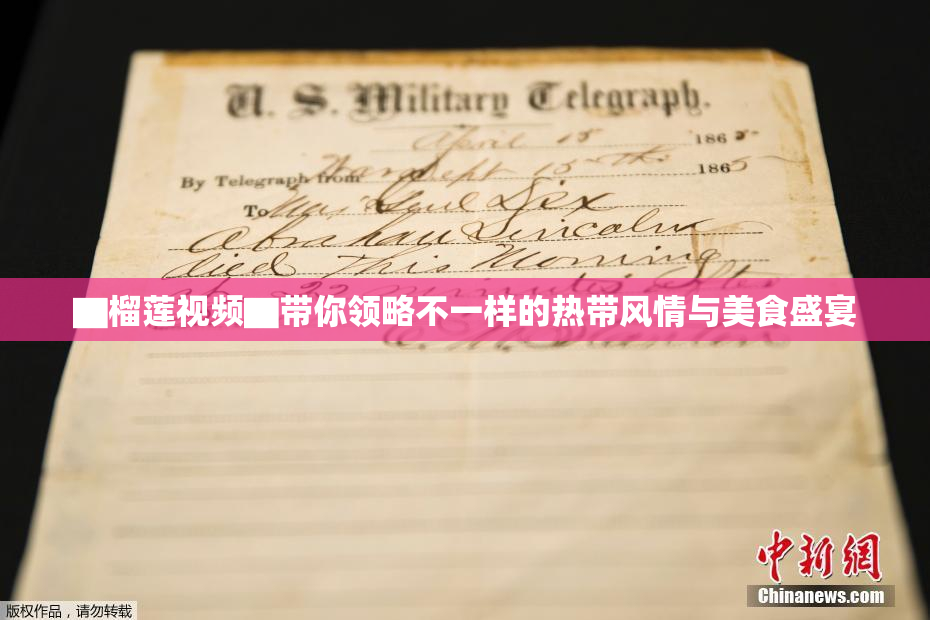 U. S. Military Telegraph.
April 15 1865
By Telegraph from War Dept 15th 1865
To Maj Genl Dix
Abraham Lincoln
died This Morning
at 22 minutes after
▇榴莲视频▇带你领略不一样的热带风情与美食盛宴
E. M. Stanton
中新网
Chinanews.com
版权作品，请勿转载